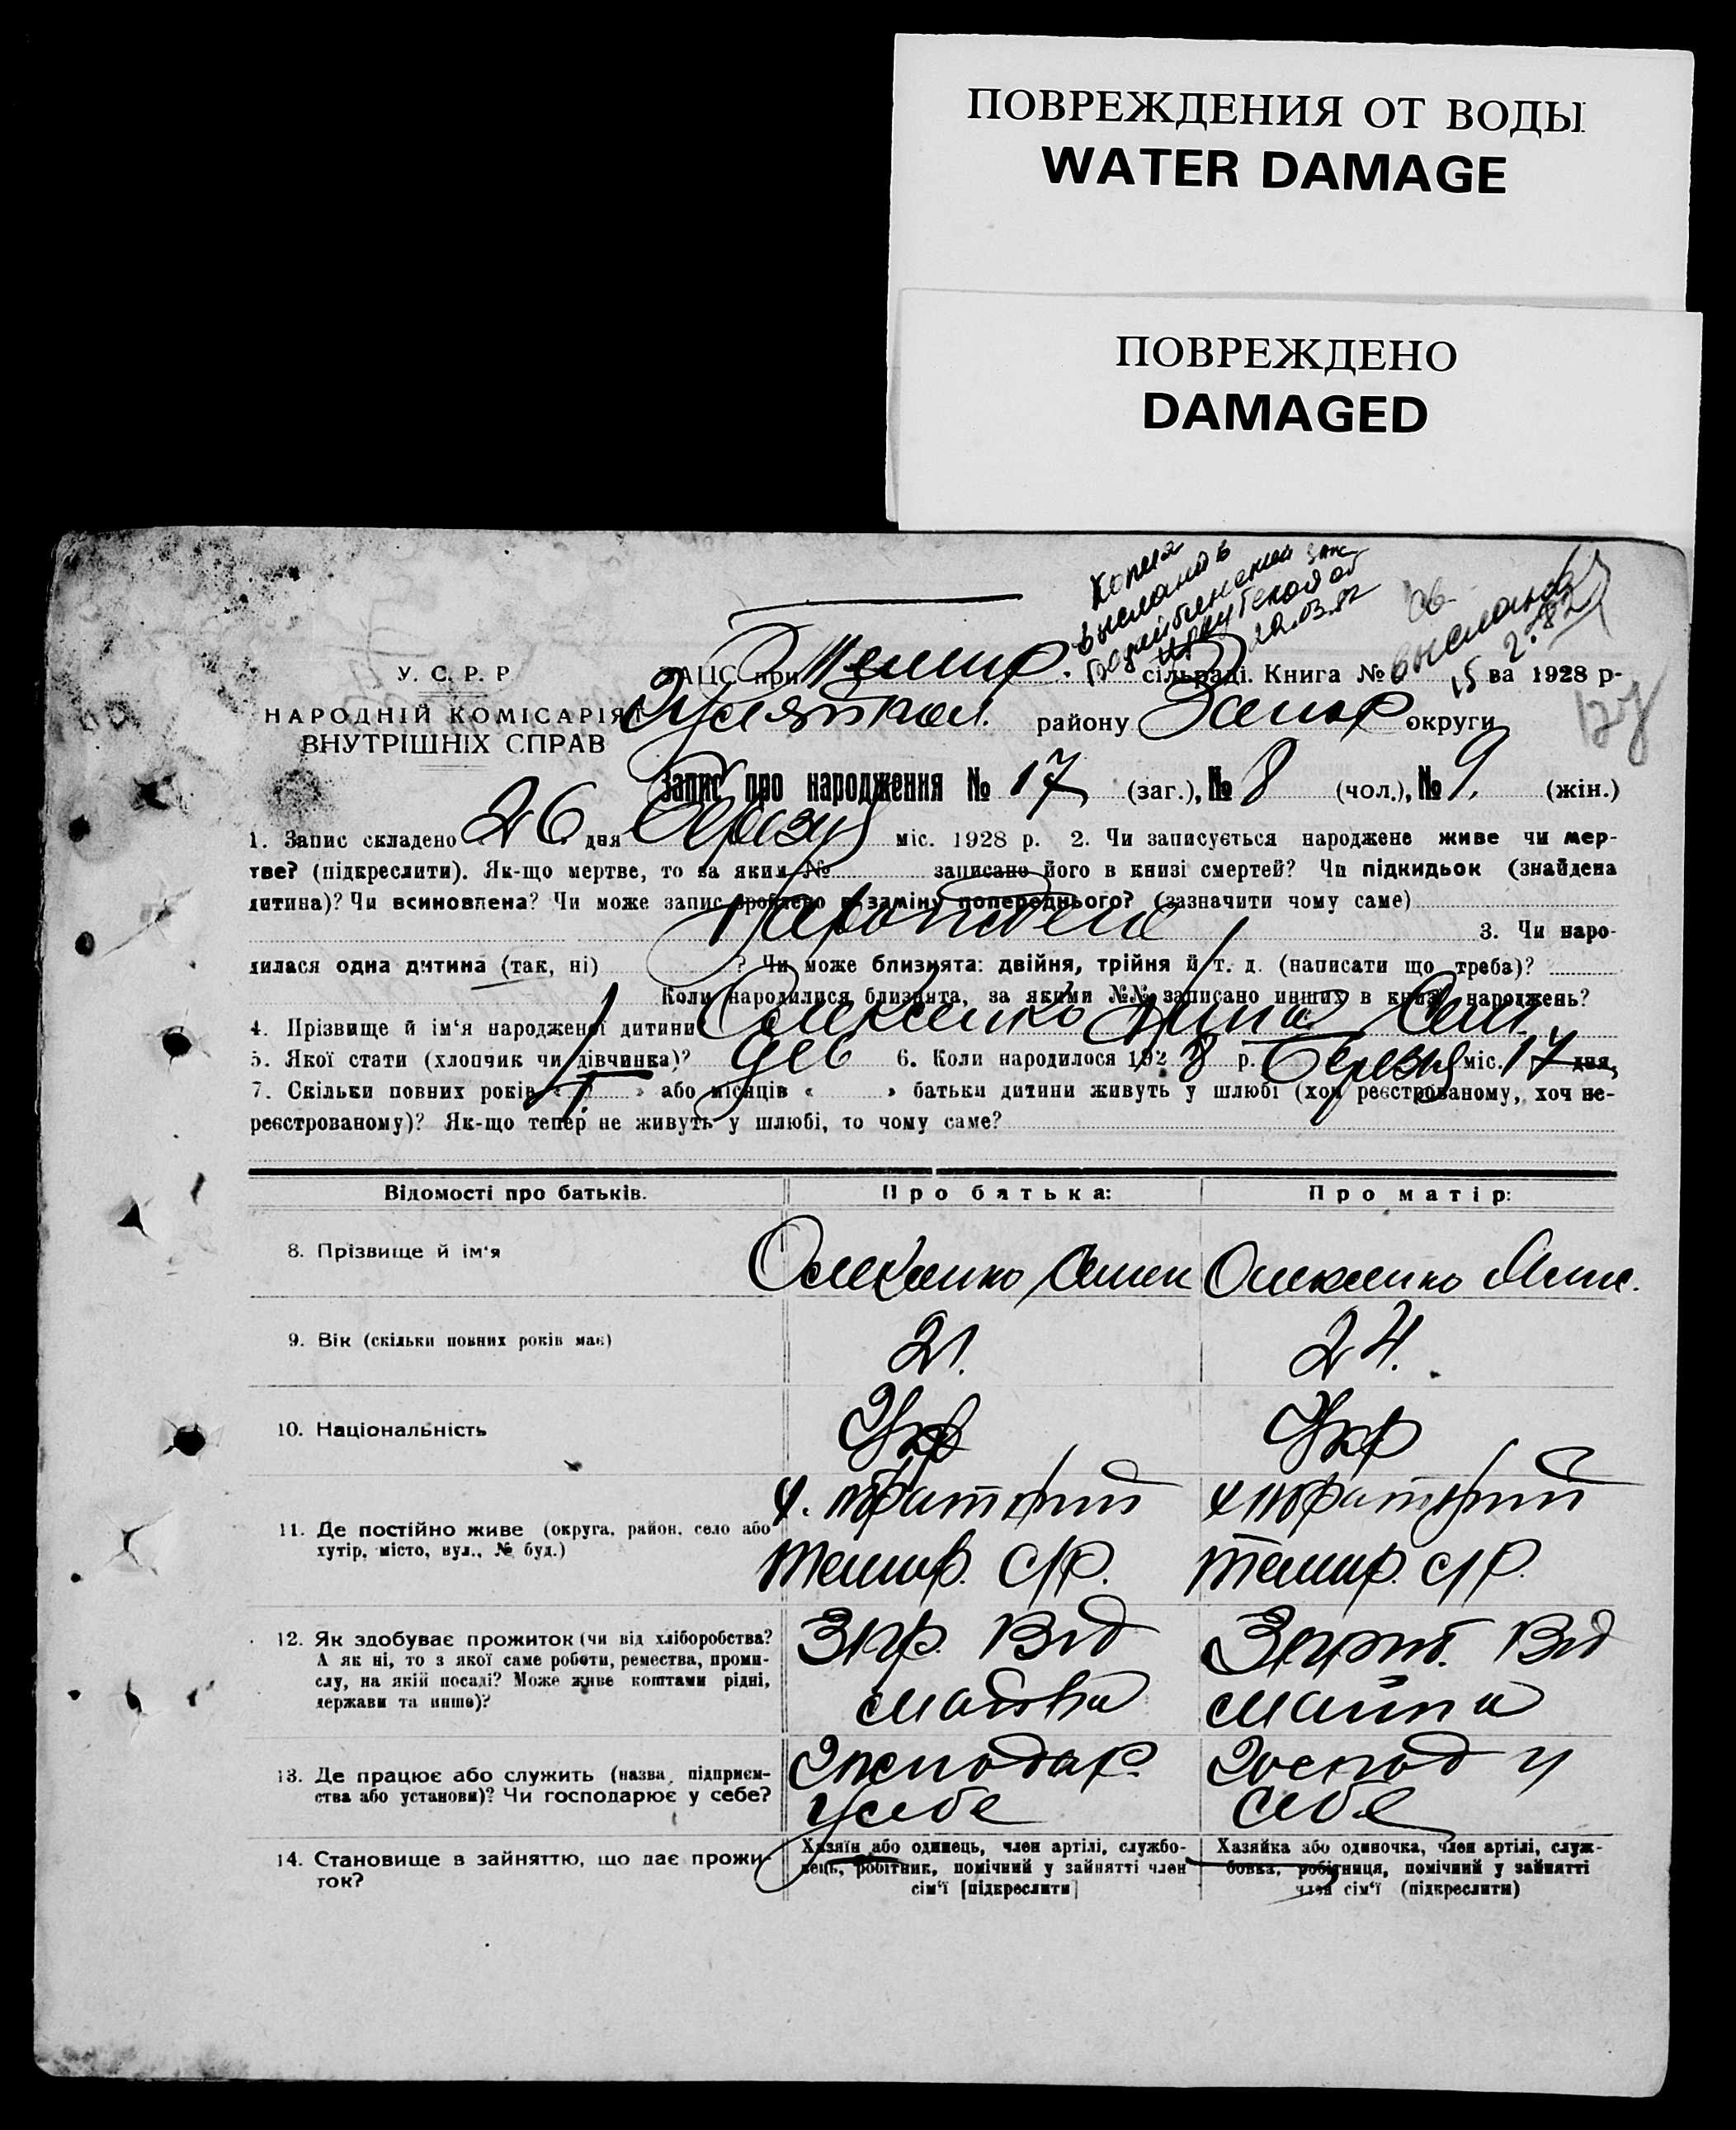 ПОВРЕЖДЕНИЯ ОТ ВОДЫ
WATER DAMAGE
ПОВРЕЖДЕНО
DAMAGED
Копия
выслана в
Иркутской об
20.03.82
выслана
У. С. Р. Р
ЗАЦС при Темир. сільраді. Книга № ва 1928 р-
НАРОДНІЙ КОМІСАРІЯТ
ВНУТРІШНІХ СПРАВ
району Запор округи
Запис про народження № 17 (заг.), № 8 (чол.), № 9 (жін.)
1. Запис складено 26 дня міс. 1928 р. 2. Чи записується народжене живе чи мер-
тве? (підкреслити). Як-що мертве, то за яким № записано його в книзі смертей? Чи підкидьок (знайдена
дитина)? Чи всиновлена? Чи може запис зроблено в заміну попереднього? (зазначити чому саме)
3. Чи наро-
дилася одна дитина (так, ні) ? Чи може близнята: двійня, трійня й т. д. (написати що треба)?
Коли народилися близнята, за якими №№ записано инших в книзі народжень?
4. Прізвище й ім‘я народженої дитини Олексенко Нина Сем.
5. Якої стати (хлопчик чи дівчинка)? дев 6. Коли народилося 1928 р. Березня міс. 17 дня,
7. Скільки повних років « 1. » або місяців « » батьки дитини живуть у шлюбі (хоч реєстрованому, хоч не-
реєстрованому)? Як-що тепер не живуть у шлюбі, то чому саме?
Відомості про батьків. Про батька: Про матір:
8. Прізвище й ім‘я Олексенко Семен Олексенко
9. Вік (скільки повних років має) 21. 24.
10. Національність Укр Укр
11. Де постійно живе (округа, район, село або
хутір, місто, вул., № буд.)
Темир. с/р. Темир. с/р.
12. Як здобуває прожиток (чи від хліборобства?
А як ні, то з якої саме роботи, ремества, проми-
слу, на якій посаді? Може живе коштами рідні,
держави та инше)?
Від Від
13. Де працює або служить (назва підприєм-
ства або установи)? Чи господарює у себе?
Господар. Господ у
у себе себе
14. Становище в зайняттю, що дає прожи-
ток?
Хазяїн або одинець, член артілі, службо-
вець, робітник, помічний у зайнятті член
сім‘ї [підкреслити]
Хазяйка або одиночка, член артілі, служ-
бовка, робітниця, помічний у зайнятті
член сім‘ї (підкреслити)